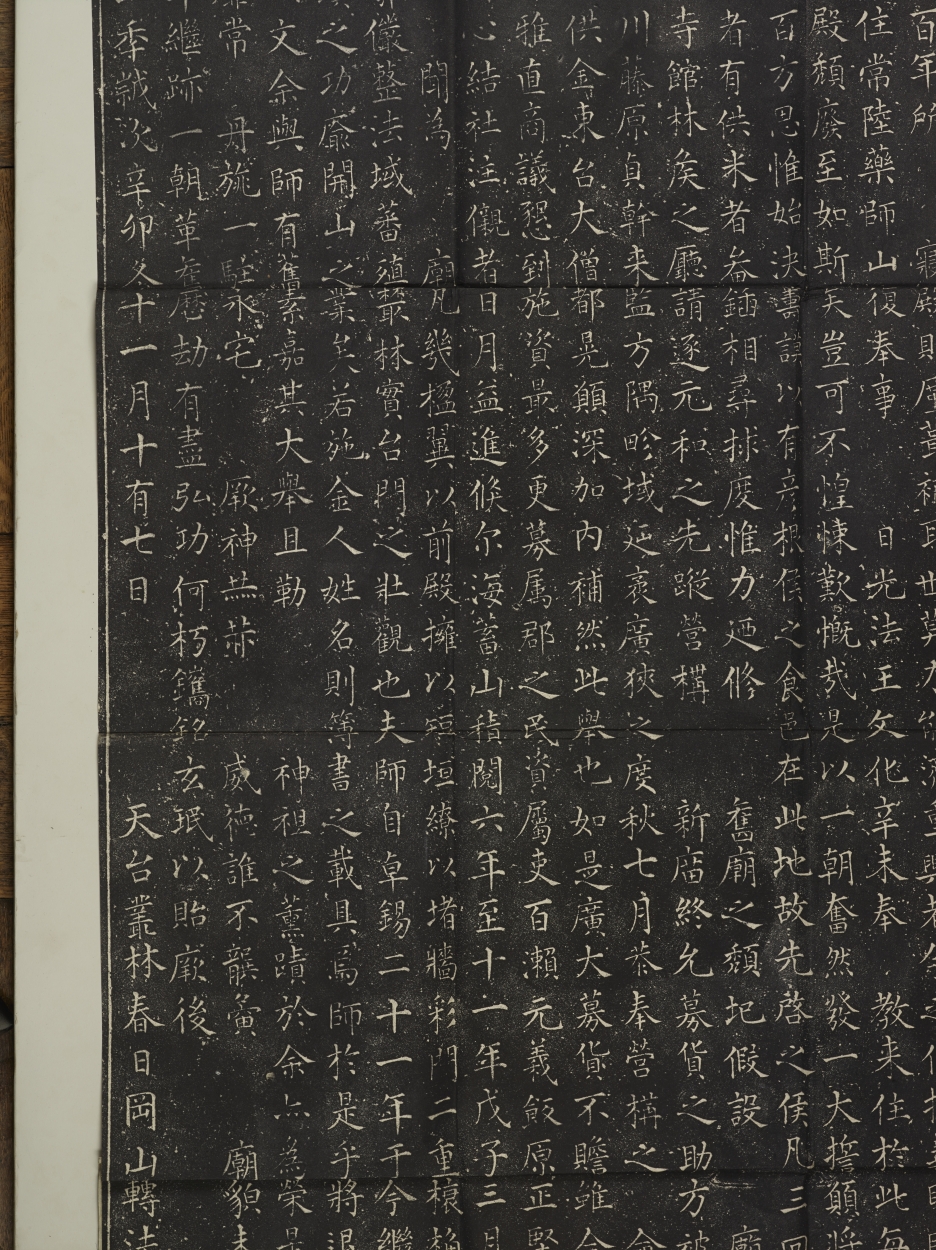 百年所 寢殿則屬
住常陸藥師山復奉事 日光法王文化辛未奉 教来住於此每
殿頹廢至如斯矣豈可不惶悚歎慨㢤是以一朝奮然發一大誓願將
百方思惟始決 以有 根侯之食邑在此地故先啓之侯凡三
者有供米者畚鍤相尋捄度惟力迺修 舊廟之頽圯假設
寺館林矦之廳請逐元和之先蹤營構 新庿終允募貨之助方
川藤原貞幹来監方隅昣域延袤廣狹之度秋七月恭奉營構之
供金東台大僧都晃顗深加内補然此舉也如是廣大募貨不贍雖
雅直商議懇到施資最多更募属郡之民資屬吏百瀨元義飯原正堅
心結社注儭者日月益進倏尔海蓄山積閱六年至十一年戊子三月
聞為 廟凡幾楹翼以前殿擁以短垣繚以堵牆彩門二重榱
儼整法域蕃殖叢林實台門之壯觀也夫師自卓錫二十一年于今繼
之功廢開山之業矣若施金人姓名則簿書之載具焉師於是乎將退
文余與師有舊素嘉其大舉且勒 神祖之薰蹟於余亦為榮是
常 丹旒一駐永宅 厥神恭恭 威徳誰不龔䖍 廟貌
繼跡 一朝葺舊歷劫有盡弘功何朽鐫銘玄珉以貽厥後
季㦸次辛卯冬十一月十有七日 天台叢林春日岡山轉法